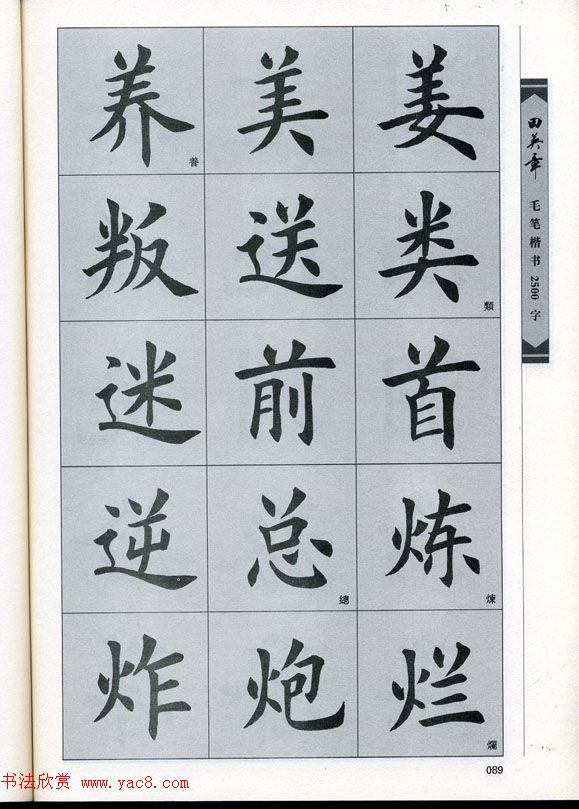 养 美 姜
養
叛 送 类
類
迷 前 首
逆 总 炼
總 煉
炸 炮 烂
爛
田英章
毛笔楷书2500字
089
书法欣赏 www.yac8.com